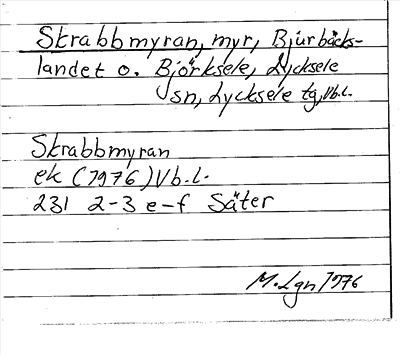 Skrabbmyran, myr, Bjurbäcks-
landet o. Björksele, Lycksele
sn, Lycksele tg, Vb.l.
Skrabbmyran
ek (1976) Vb.l.
231 2-3 e-f Säter
M. Lgn 1976